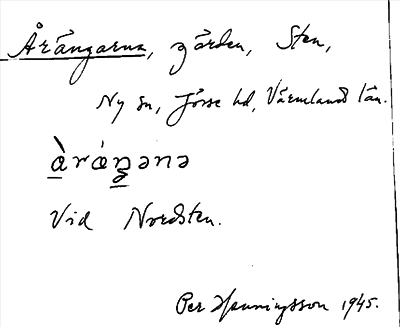 Årängarna, gården, Sten,
Ny sn, Jösse hd, Värmlands län.
àráŋənə
Vid Nordsten.
Per Henningsson 1945.